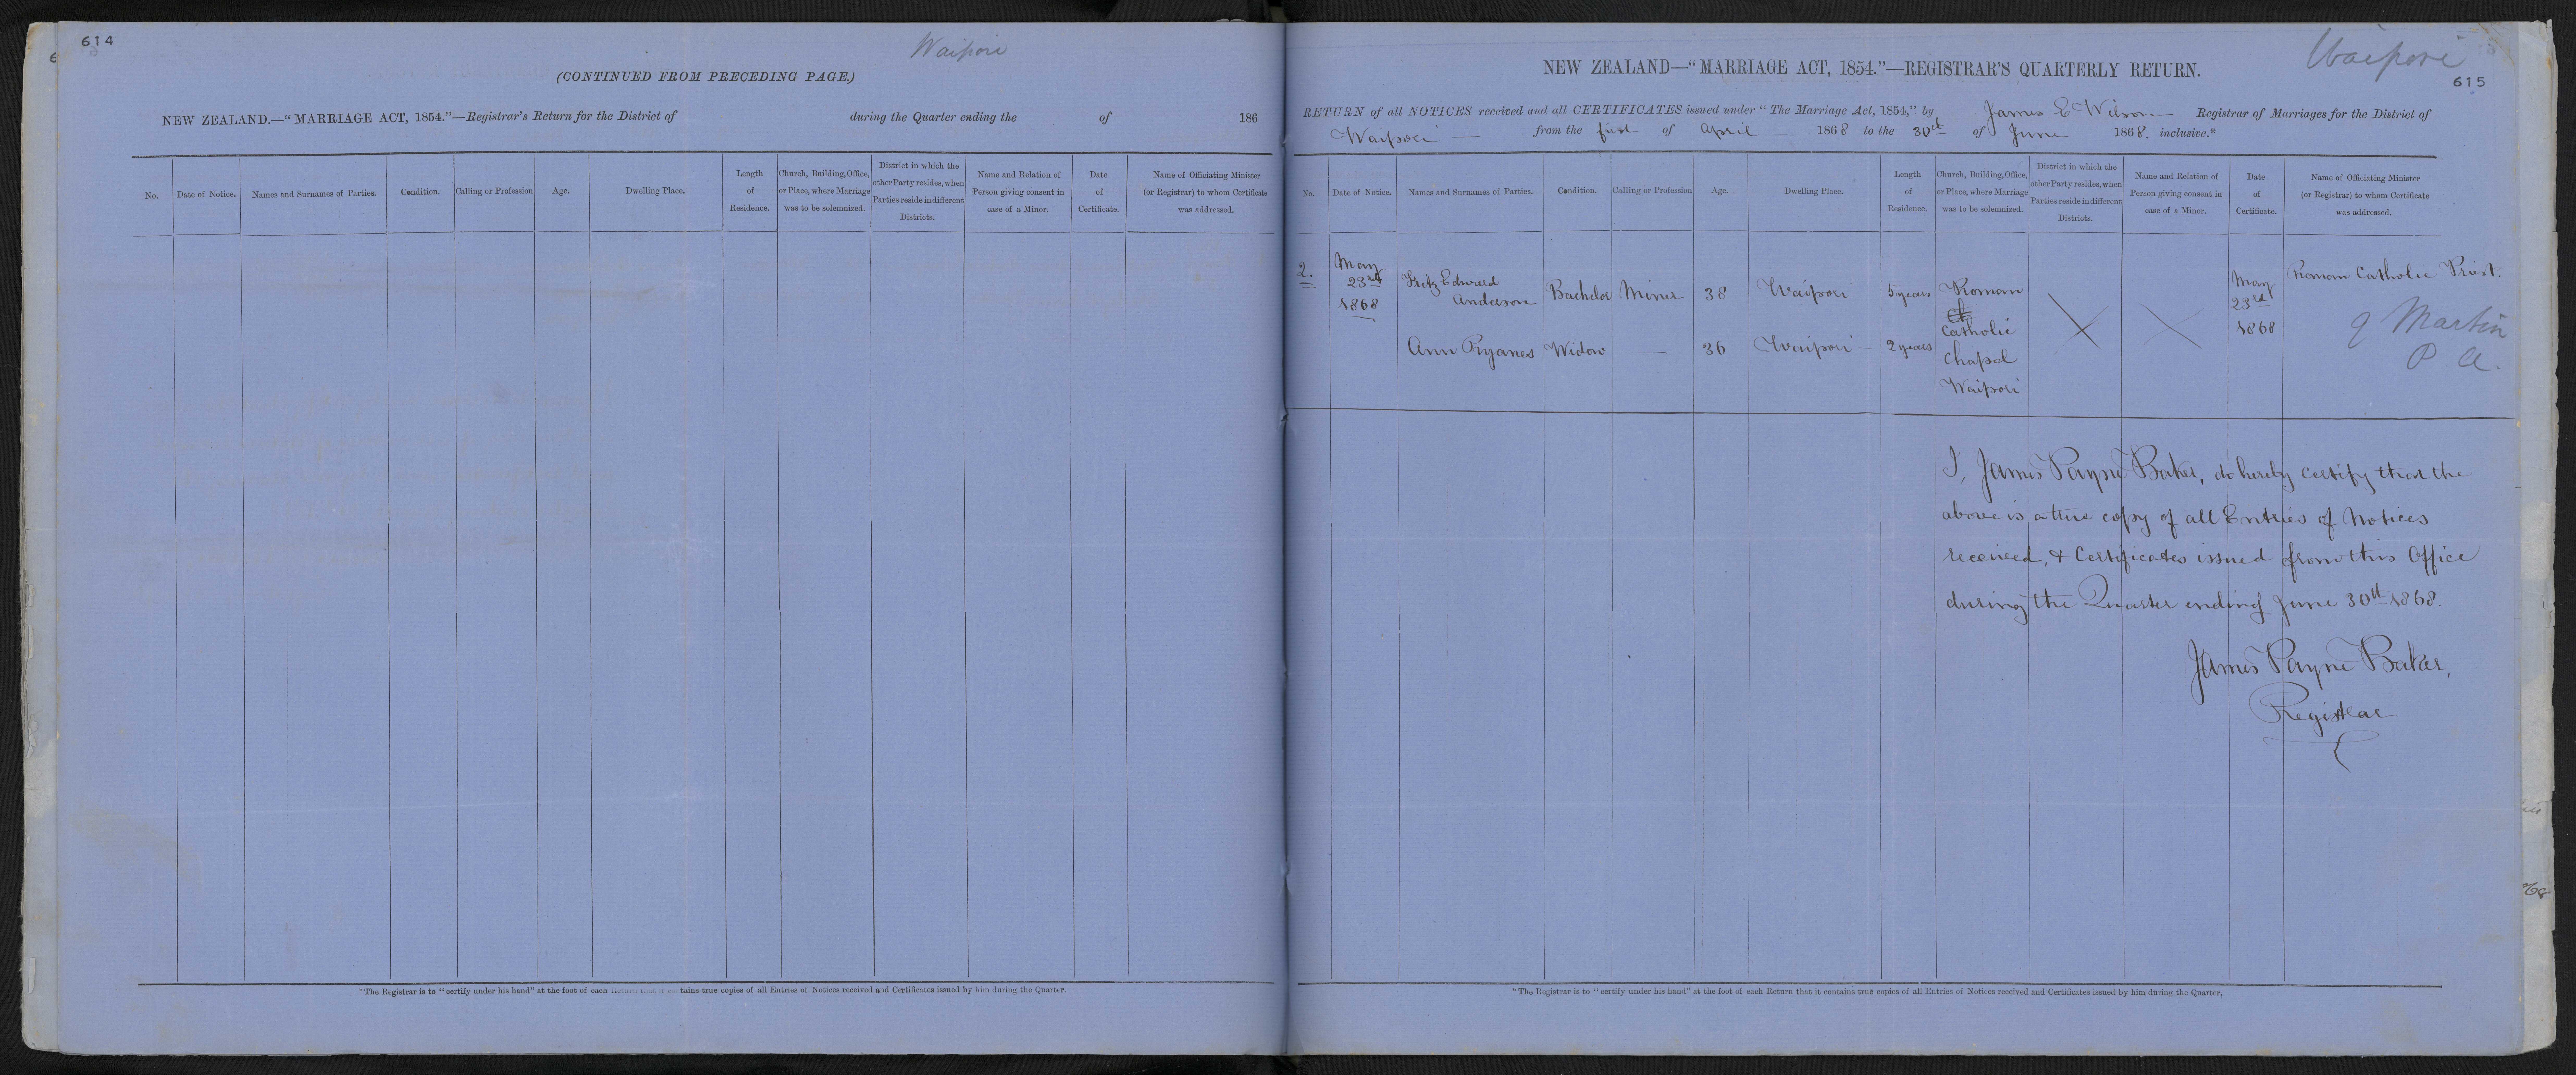 614
Waipori
(CONTINUED FROM PRECEDING PAGE.)
NEW ZEALAND.—"MARRIAGE ACT, 1854."—Registrar's Return for the District of during the Quarter ending the of 186
No. Date of Notice. Names and Surnames of Parties. Condition. Calling or Profession Age. Dwelling Place. Length of Residence. Church, Building, Office, or Place, where Marriage was to be solemnized. District in which the other Party resides, when Parties reside in different Districts. Name and Relation of Person giving consent in case of a Minor. Date of Certificate. Name of Officiating Minister (or Registrar) to whom Certificate was addressed.
*The Registrar is to "certify under his hand" at the foot of each Return that it contains true copies of all Entries of Notices received and Certificates issued by him during the Quarter.
Waipori
615
NEW ZEALAND—"MARRIAGE ACT, 1854."—REGISTRAR'S QUARTERLY RETURN.
RETURN of all NOTICES received and all CERTIFICATES issued under "The Marriage Act, 1854," by James E Wilson Registrar of Marriages for the District of
Waipori from the first of April 1868 to the 30th of June 1868. inclusive.*
No. Date of Notice. Names and Surnames of Parties. Condition. Calling or Profession Age. Dwelling Place. Length of Residence. Church, Building, Office, or Place, where Marriage was to be solemnized. District in which the other Party resides, when Parties reside in different Districts. Name and Relation of Person giving consent in case of a Minor. Date of Certificate. Name of Officiating Minister (or Registrar) to whom Certificate was addressed.
2. May 23rd 1868 Fritz Edward Anderson Bachelor Miner 38 Waipori 5 years Roman Catholic Chapel Waipori May 23rd 1868 Roman Catholic Priest.
Ann Ryanes Widow 36 Waipori 2 years
Martin
P A.
I, James Payne Baker, do hereby certify that the
above is a true copy of all Entries of Notices
received, & Certificates issued from this Office
during the Quarter ending June 30th 1868.
James Payne Baker,
Registrar
*The Registrar is to "certify under his hand" at the foot of each Return that it contains true copies of all Entries of Notices received and Certificates issued by him during the Quarter.